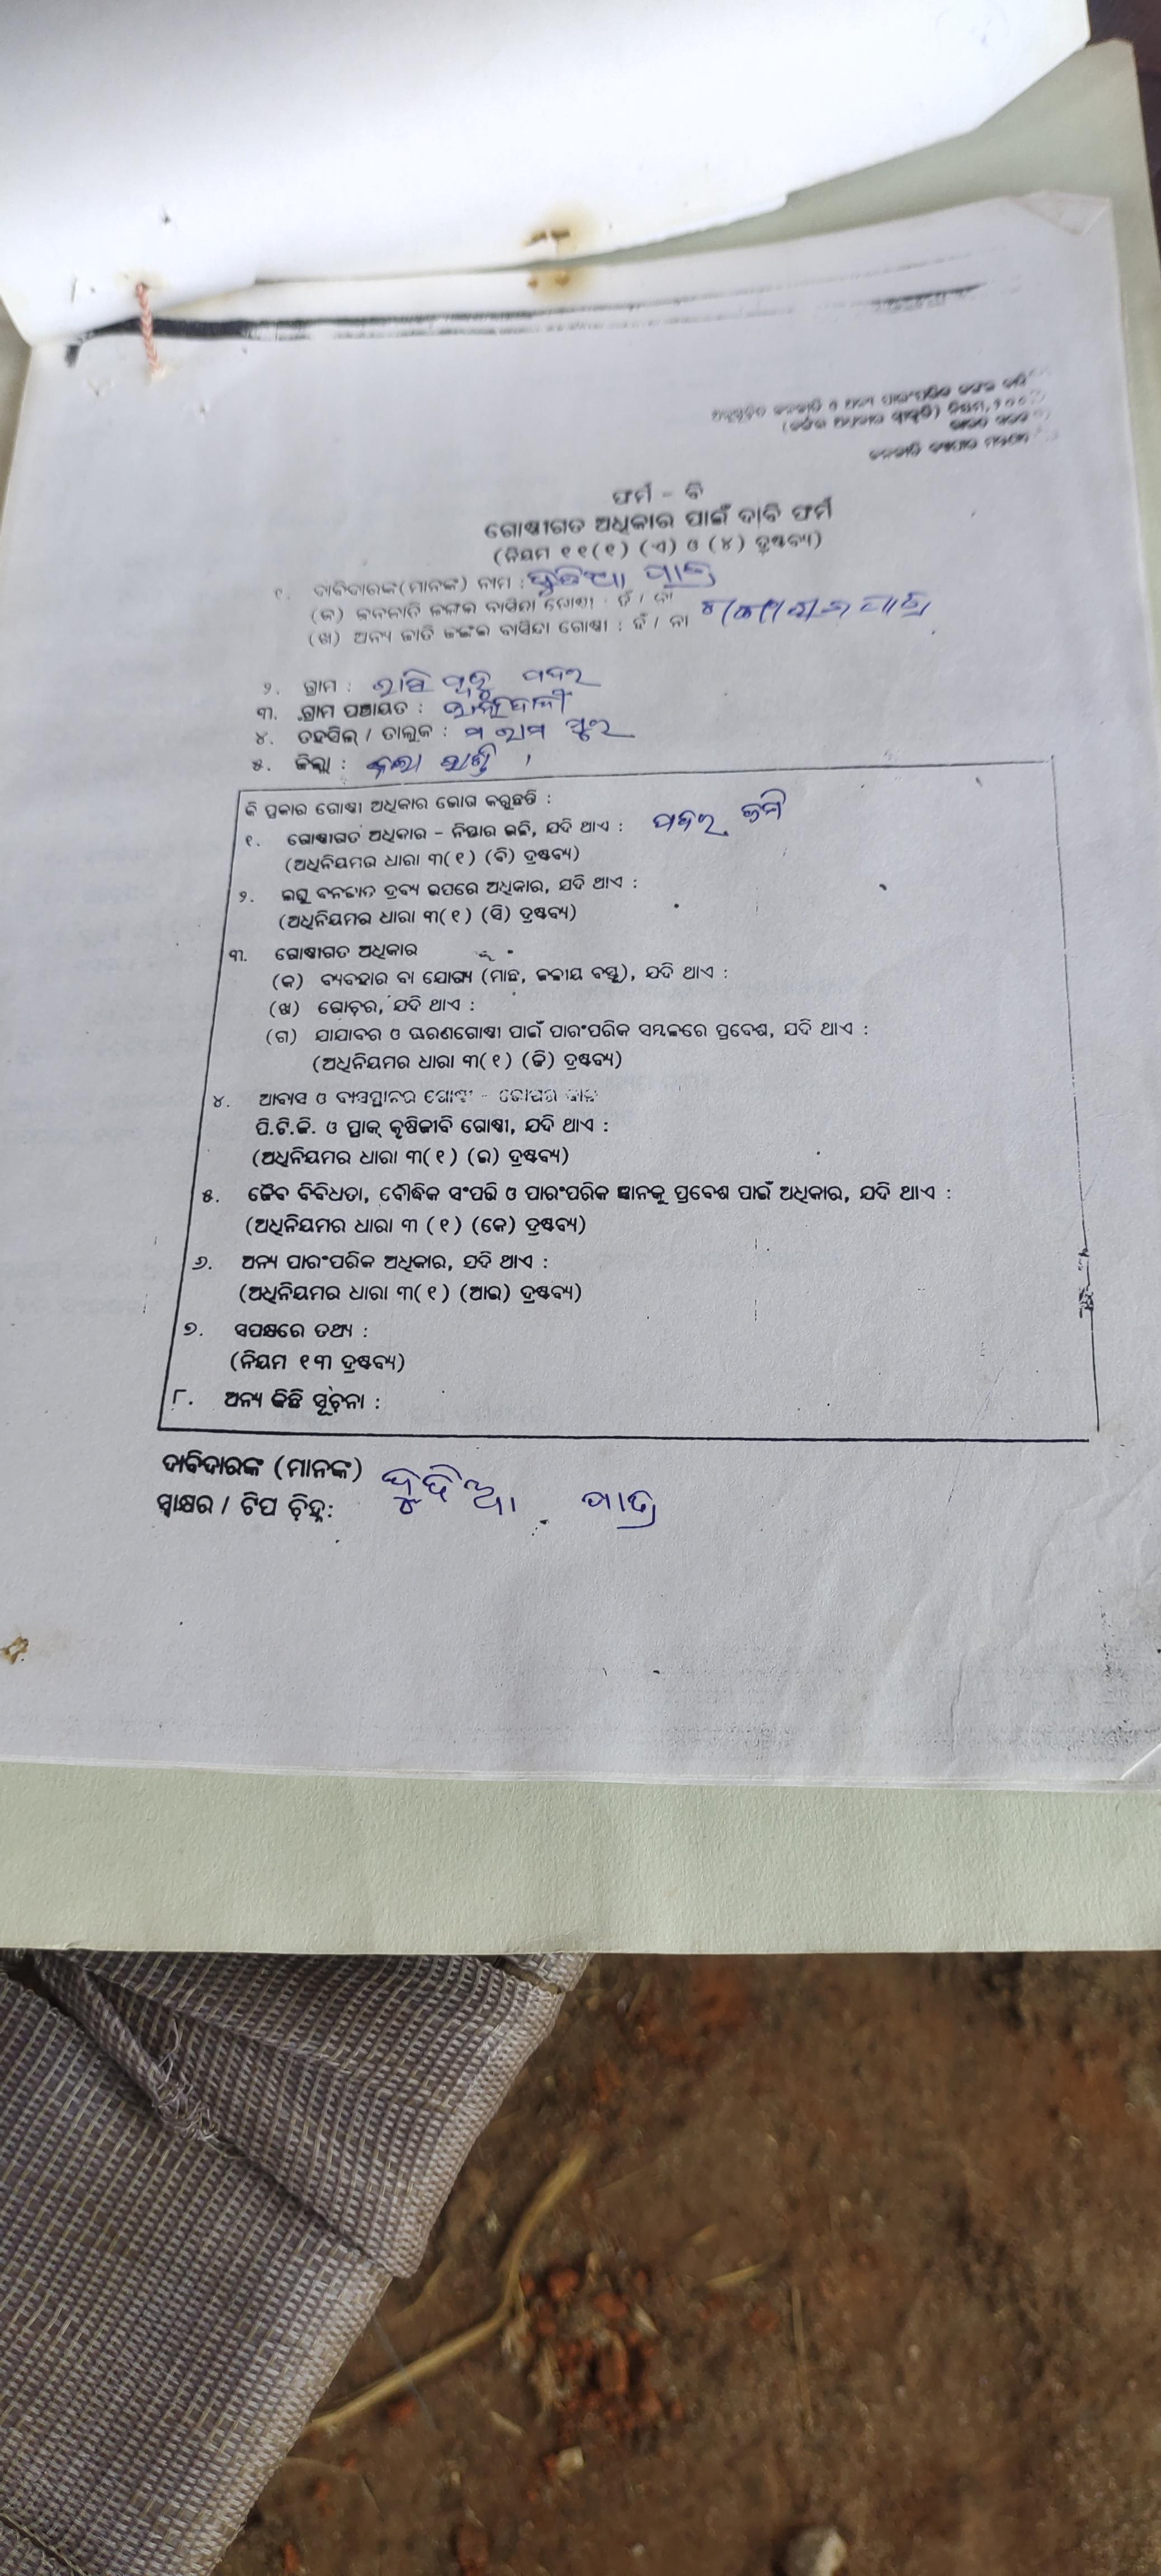 ଅନୁସୂଚିତ ଜନଜାତି ଓ ଅନ୍ୟ ପାରଂପରିକ ଜଙ୍ଗଲ
(ଜଙ୍ଗଲ ଅଧିକାର ସ୍ୱୀକୃତି) ନିୟମ,
ଭାରତ ସରକାର
ଜନଜାତି କଲ୍ୟାଣ
ଫର୍ମ - ବି
ଗୋଷ୍ଠୀଗତ ଅଧିକାର ପାଇଁ ଦାବି ଫର୍ମ
(ନିୟମ ୧୧(୧) (ଏ) ଓ (୪) ଦ୍ରଷ୍ଟବ୍ୟ)
୧. ଦାବିଦାରଙ୍କ(ମାନଙ୍କ) ନାମ : ଦୁଦିଆ ପାତ୍ର
(କ) ଜନଜାତି ଜଙ୍ଗଲ ବାସିନ୍ଦା ଗୋଷ୍ଠୀ : ହଁ / ନା
(ଖ) ଅନ୍ୟ ଜାତି ଜଙ୍ଗଲ ବାସିନ୍ଦା ଗୋଷ୍ଠୀ : ହଁ / ନା
୨. ଗ୍ରାମ : ପଦର
୩. ଗ୍ରାମ ପଞ୍ଚାୟତ :
୪. ତହସିଲ୍ / ତାଲୁକ : ମ ରାମ ପୁର
୫. ଜିଲ୍ଲା : କଳା ହାଣ୍ଡି
କି ପ୍ରକାର ଗୋଷ୍ଠୀ ଅଧିକାର ଭୋଗ କରୁଛନ୍ତି :
୧. ଗୋଷ୍ଠୀଗତ ଅଧିକାର - ନିସ୍ତାର ଭଳି, ଯଦି ଥାଏ : ପଦର ଜମି
(ଅଧିନିୟମର ଧାରା ୩(୧) (ବି) ଦ୍ରଷ୍ଟବ୍ୟ)
୨. ଲଘୁ ବନଜାତ ଦ୍ରବ୍ୟ ଉପରେ ଅଧିକାର, ଯଦି ଥାଏ :
(ଅଧିନିୟମର ଧାରା ୩(୧) (ସି) ଦ୍ରଷ୍ଟବ୍ୟ)
୩. ଗୋଷ୍ଠୀଗତ ଅଧିକାର
(କ) ବ୍ୟବହାର ବା ଯୋଗ୍ୟ (ମାଛ, ଜଳୀୟ ବସ୍ତୁ), ଯଦି ଥାଏ :
(ଖ) ଗୋଚର, ଯଦି ଥାଏ :
(ଗ) ଯାଯାବର ଓ ଚ୍ଚାରଣଗୋଷ୍ଠୀ ପାଇଁ ପାରଂପରିକ ସମ୍ବଳରେ ପ୍ରବେଶ, ଯଦି ଥାଏ :
(ଅଧିନିୟମର ଧାରା ୩(୧) (ଜି) ଦ୍ରଷ୍ଟବ୍ୟ)
୪. ଆବାସ ଓ ବାସସ୍ଥାନର ଗୋଷ୍ଠୀ -
ପି.ଟି.ଜି. ଓ ପ୍ରାକ୍ କୃଷିଜୀବି ଗୋଷ୍ଠୀ, ଯଦି ଥାଏ :
(ଅଧିନିୟମର ଧାରା ୩(୧) (ଇ) ଦ୍ରଷ୍ଟବ୍ୟ)
୫. ଜୈବ ବିବିଧତା, ବୌଦ୍ଧିକ ସଂପତ୍ତି ଓ ପାରଂପରିକ ଜ୍ଞାନକୁ ପ୍ରବେଶ ପାଇଁ ଅଧିକାର, ଯଦି ଥାଏ :
(ଅଧିନିୟମର ଧାରା ୩ (୧) (କେ) ଦ୍ରଷ୍ଟବ୍ୟ)
୬. ଅନ୍ୟ ପାରଂପରିକ ଅଧିକାର, ଯଦି ଥାଏ :
(ଅଧିନିୟମର ଧାରା ୩(୧) (ଆଇ) ଦ୍ରଷ୍ଟବ୍ୟ)
୭. ସପକ୍ଷରେ ତଥ୍ୟ :
(ନିୟମ ୧୩ ଦ୍ରଷ୍ଟବ୍ୟ)
୮. ଅନ୍ୟ କିଛି ସୂଚନା :
ଦାବିଦାରଙ୍କ (ମାନଙ୍କ)
ସ୍ୱାକ୍ଷର / ଟିପ ଚିହ୍ନ: ଦୁଦିଆ ପାତ୍ର